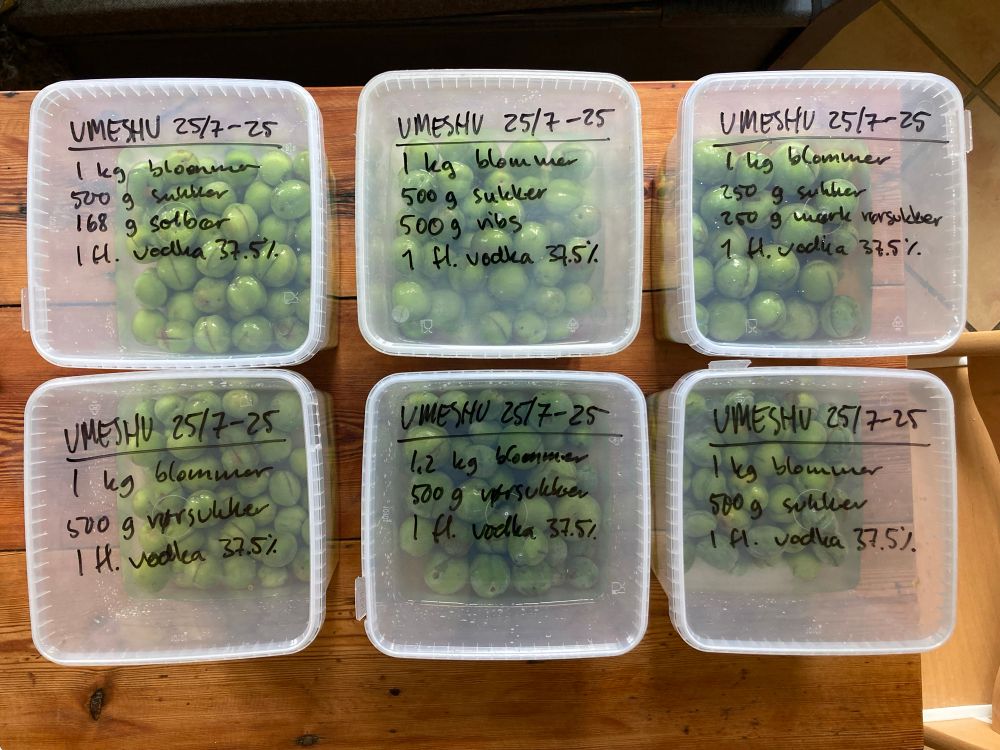 UMESHU 25/7-25
1 kg blommer
500 g sukker
168 g solbær
1 fl. vodka 37.5%
UMESHU 25/7-25
1 kg blommer
500 g sukker
500 g ribs
1 fl. vodka 37.5%
UMESHU 25/7-25
1 kg blommer
250 g sukker
250 g mørk rørsukker
1 fl. vodka 37.5%
UMESHU 25/7-25
1 kg blommer
500 g rørsukker
1 fl. vodka 37.5%
UMESHU 25/7-25
1,2 kg blommer
500 g rørsukker
1 fl. vodka 37.5%
UMESHU 25/7-25
1 kg blommer
500 g sukker
1 fl. vodka 37.5%